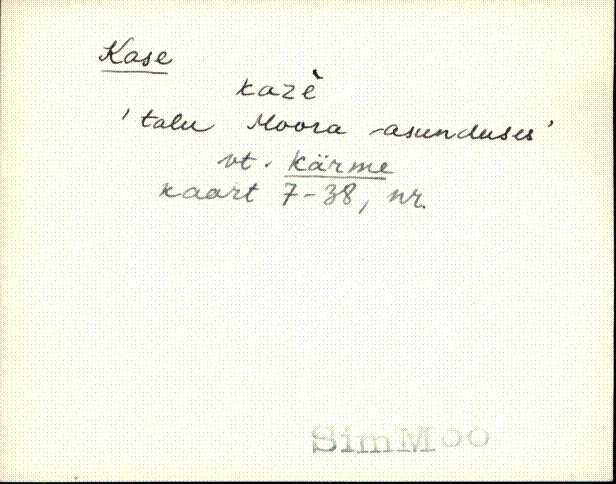 Kase
kazè
'talu Moora -asunduses'
vt. kärme
kaart 7-38, nr.
SimMoo